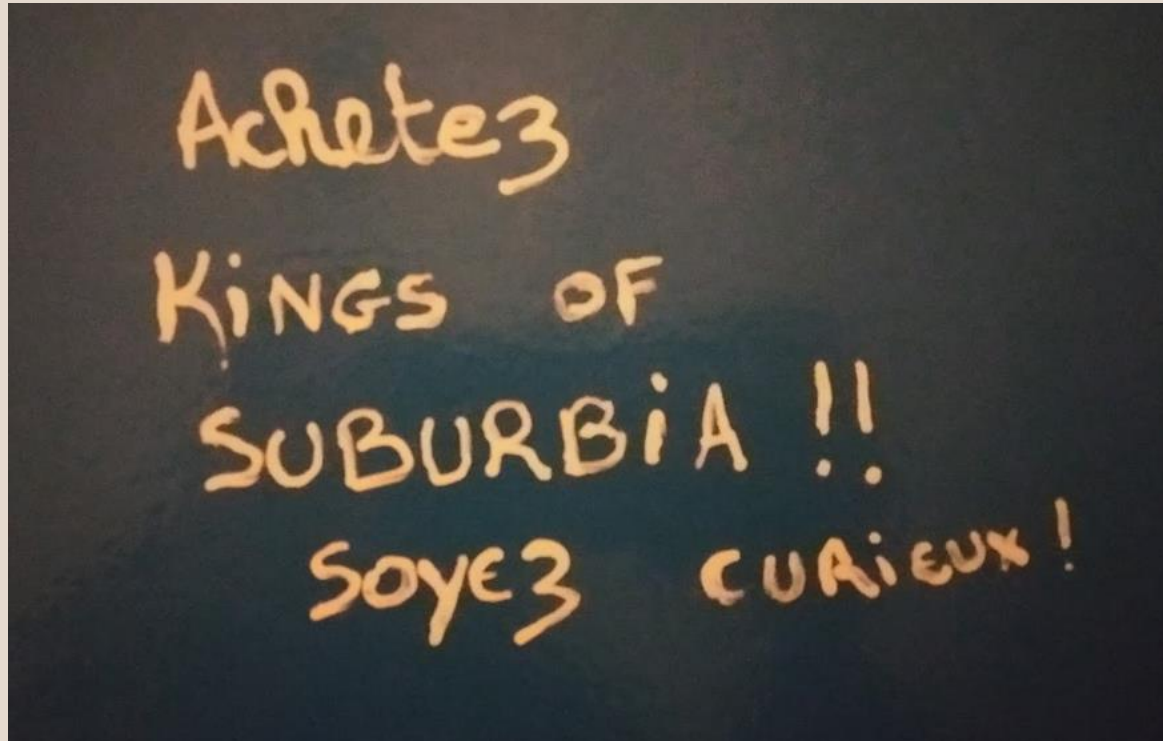 Achetez
KiNGS OF
SUBURBiA !!
Soyez CURiEUX !